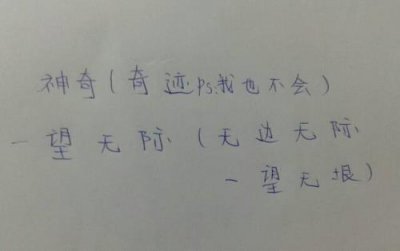 神奇(奇迹ps.我也不会)
一望无际(无边无际
一望无垠)